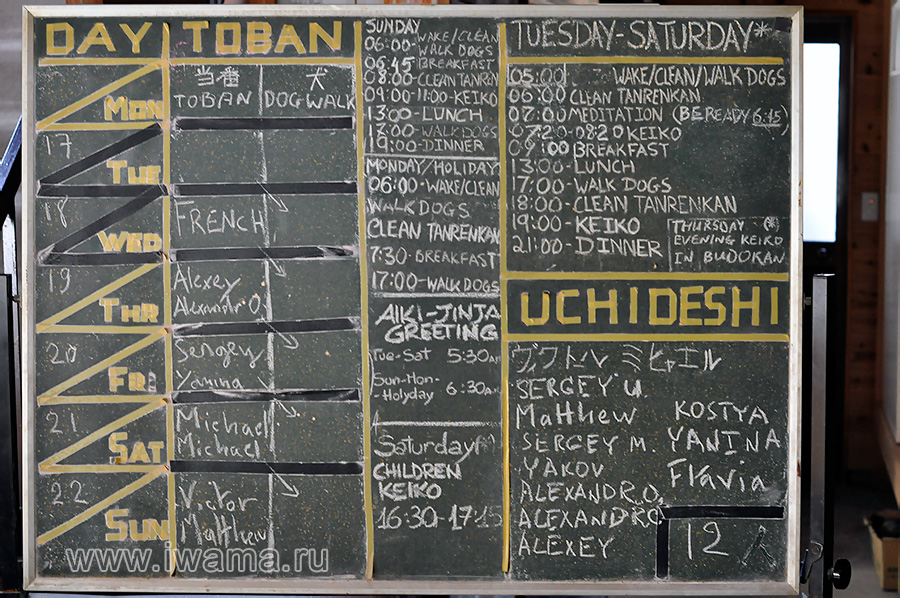 DAY TOBAN
当番 犬
TOBAN DOG WALK
MON
17
TUE
18
WED
FRENCH
19
THR
Alexey
Alexandr O.
20
FRI
Sergey
Yanina
21
SAT
Michael
Michael
22
SUN
Victor
Matthew
SUNDAY
06:00-WAKE/CLEAN
WALK DOGS
06:45 BREAKFAST
08:00-CLEAN TANREN
09:00-11:00-KEIKO
13:00-LUNCH
17:00-WALK DOGS
19:00-DINNER
MONDAY/HOLIDAY
06:00-WAKE/CLEAN
WALK DOGS
CLEAN TANREKAN
7:30-BREAKFAST
17:00-WALK DOGS
AIKI-JINJA
GREETING
Tue-Sat 5:30am
Sun-Mon-
Holyday 6:30am
Saturday(*)
CHILDREN
KEIKO
16:30-17:15
TUESDAY-SATURDAY*
05:00 WAKE/CLEAN/WALK DOGS
06:00 CLEAN TANRENKAN
07:00-MEDITATION (BE READY 6:45)
07:20-08:20 KEIKO
09:00 BREAKFAST
13:00-LUNCH
17:00-WALK DOGS
18:00-CLEAN TANRENKAN
19:00-KEIKO
21:00-DINNER
THURSDAY (*)
EVENING KEIKO
IN BUDOKAN
UCHIDESHI
ミヒャエル
SERGEY U.
Matthew
SERGEY M.
YAKOV
ALEXANDR O.
ALEXANDR O.
ALEXEY
KOSTYA
YANINA
Flavia
12 人
www.iwama.ru